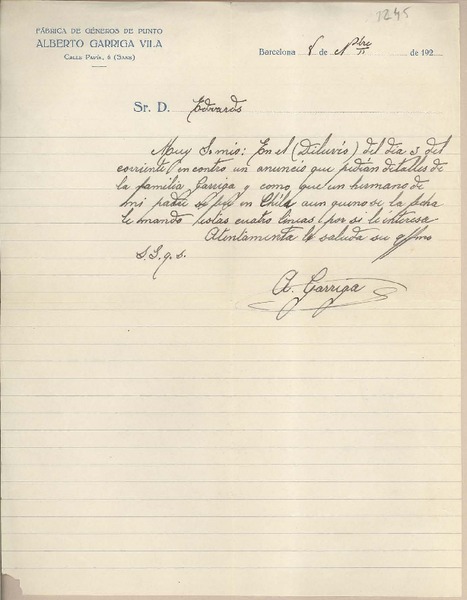 1245
FÁBRICA DE GÉNEROS DE PUNTO
ALBERTO GARRIGA VILA
CALLE PAVÍA, 6 (SANS)
Barcelona 8 de Nbre de 192
Sr. D. Edwards
Muy Sr mio: En el (Diluvio) del dia 3 del
corriente encontro un anuncio que pidian detalles de
la familia Garriga y como que un hermano de
mi padre se fué en Chile aun que no se la fecha
le mando estas cuatro lineas por si le interesa
Atentamente le saluda su affmo
S. S. q. s.
A. Garriga